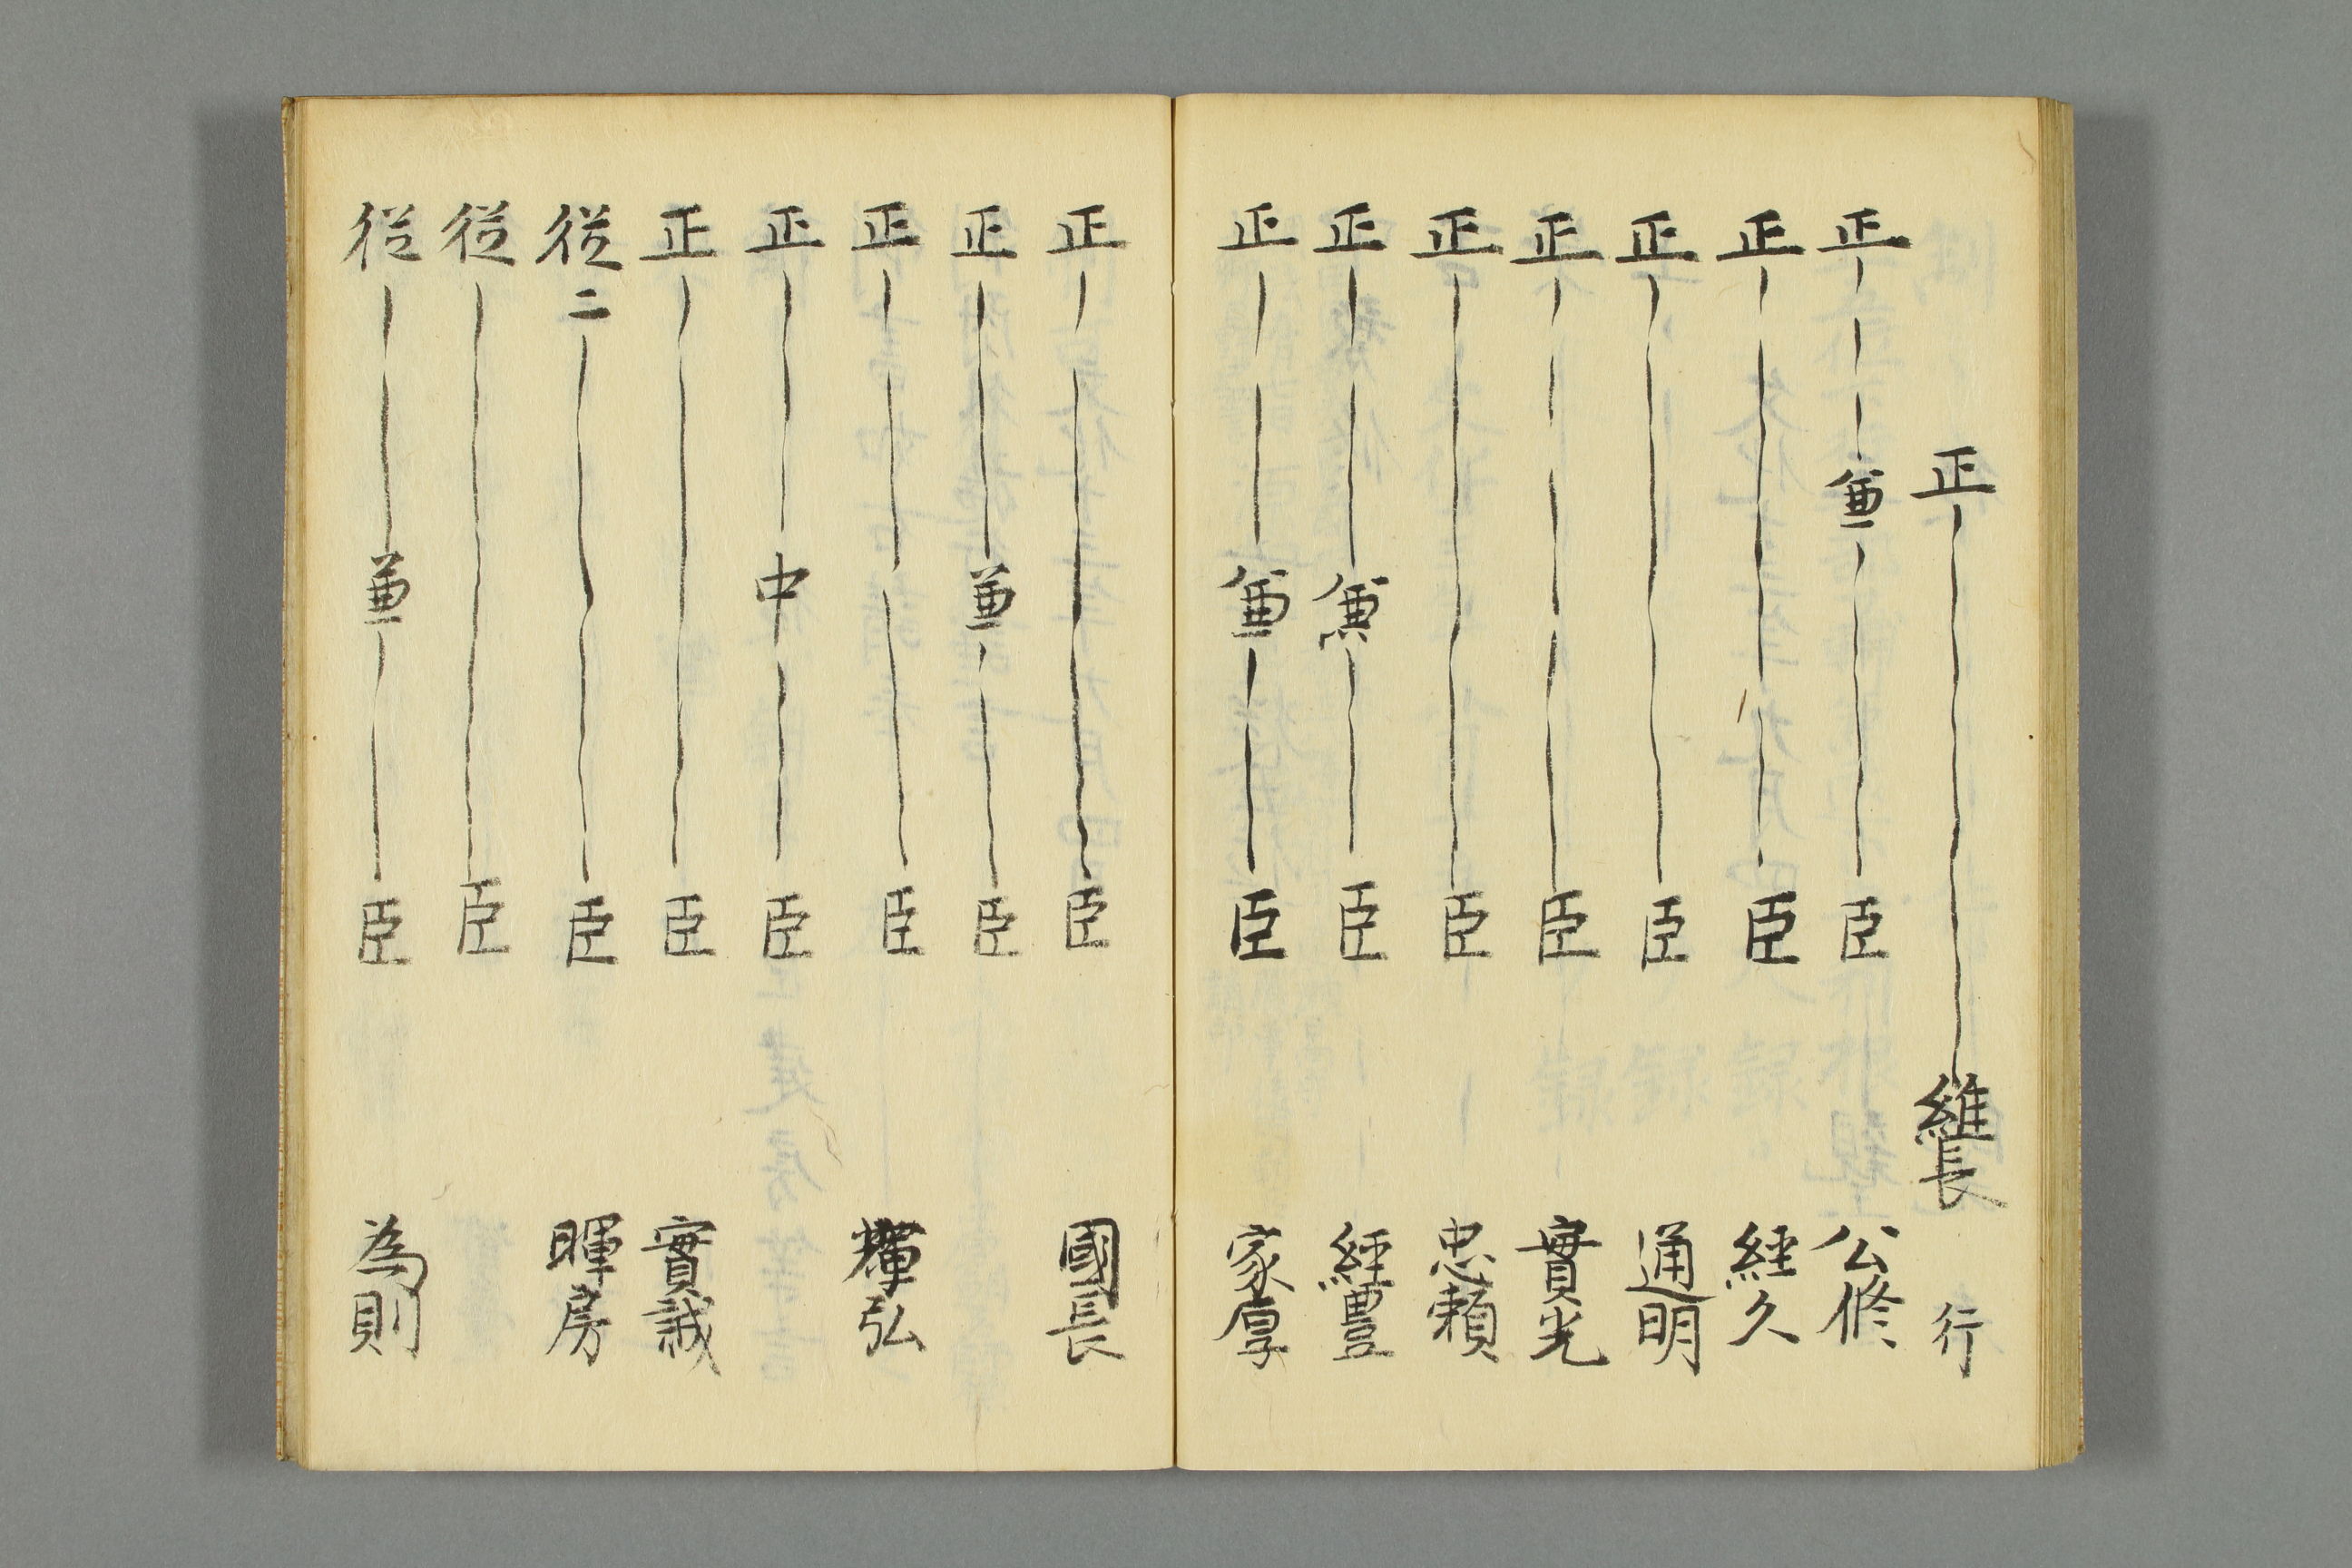 正――維長 行
正――兼――臣 公修
正――臣 経久
正――臣 通明
正――臣 實光
正――臣 忠頼
正――兼――臣 経豊
正――兼――臣 家厚
正――臣 國長
正――兼――臣
正――臣 輝弘
正――中――臣
正――臣 實誠
従二――臣 暉房
従――臣
従――兼――臣 為則